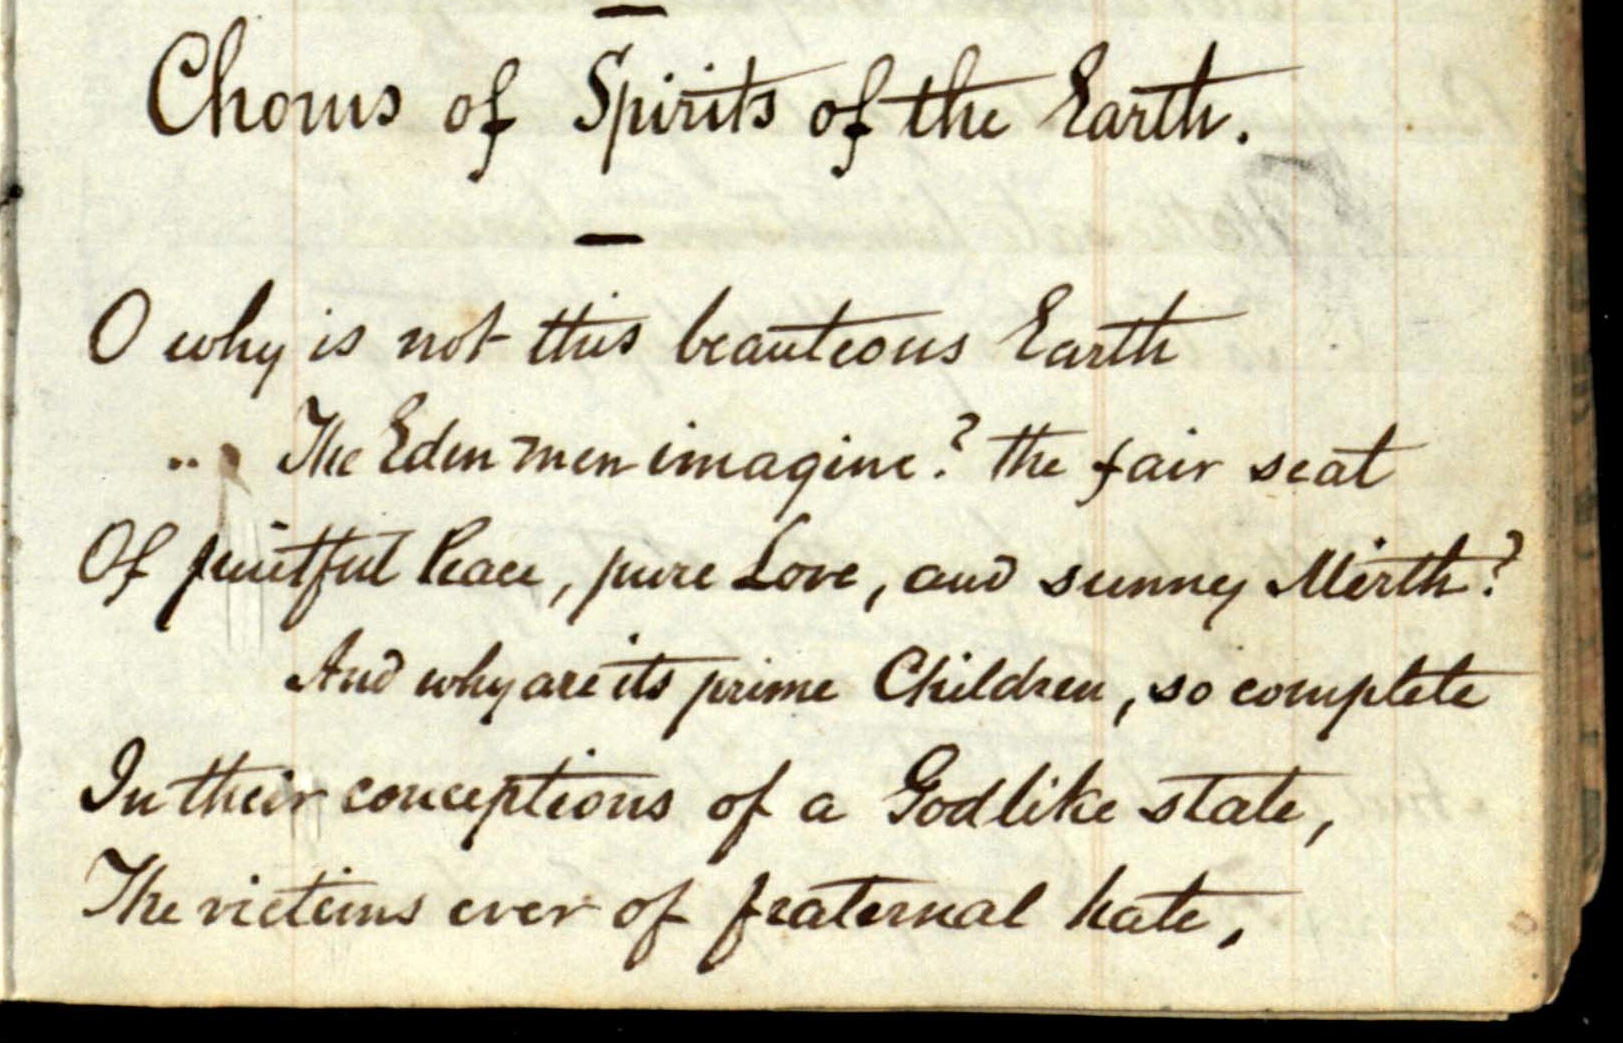 Chorus of Spirits of the Earth.
O why is not this beauteous Earth
The Eden men imagine? the fair seat
Of fruitful Peace, pure Love, and sunny Mirth?
And why are its prime Children, so complete
In their conceptions of a Godlike state,
The victims ever of fraternal hate,